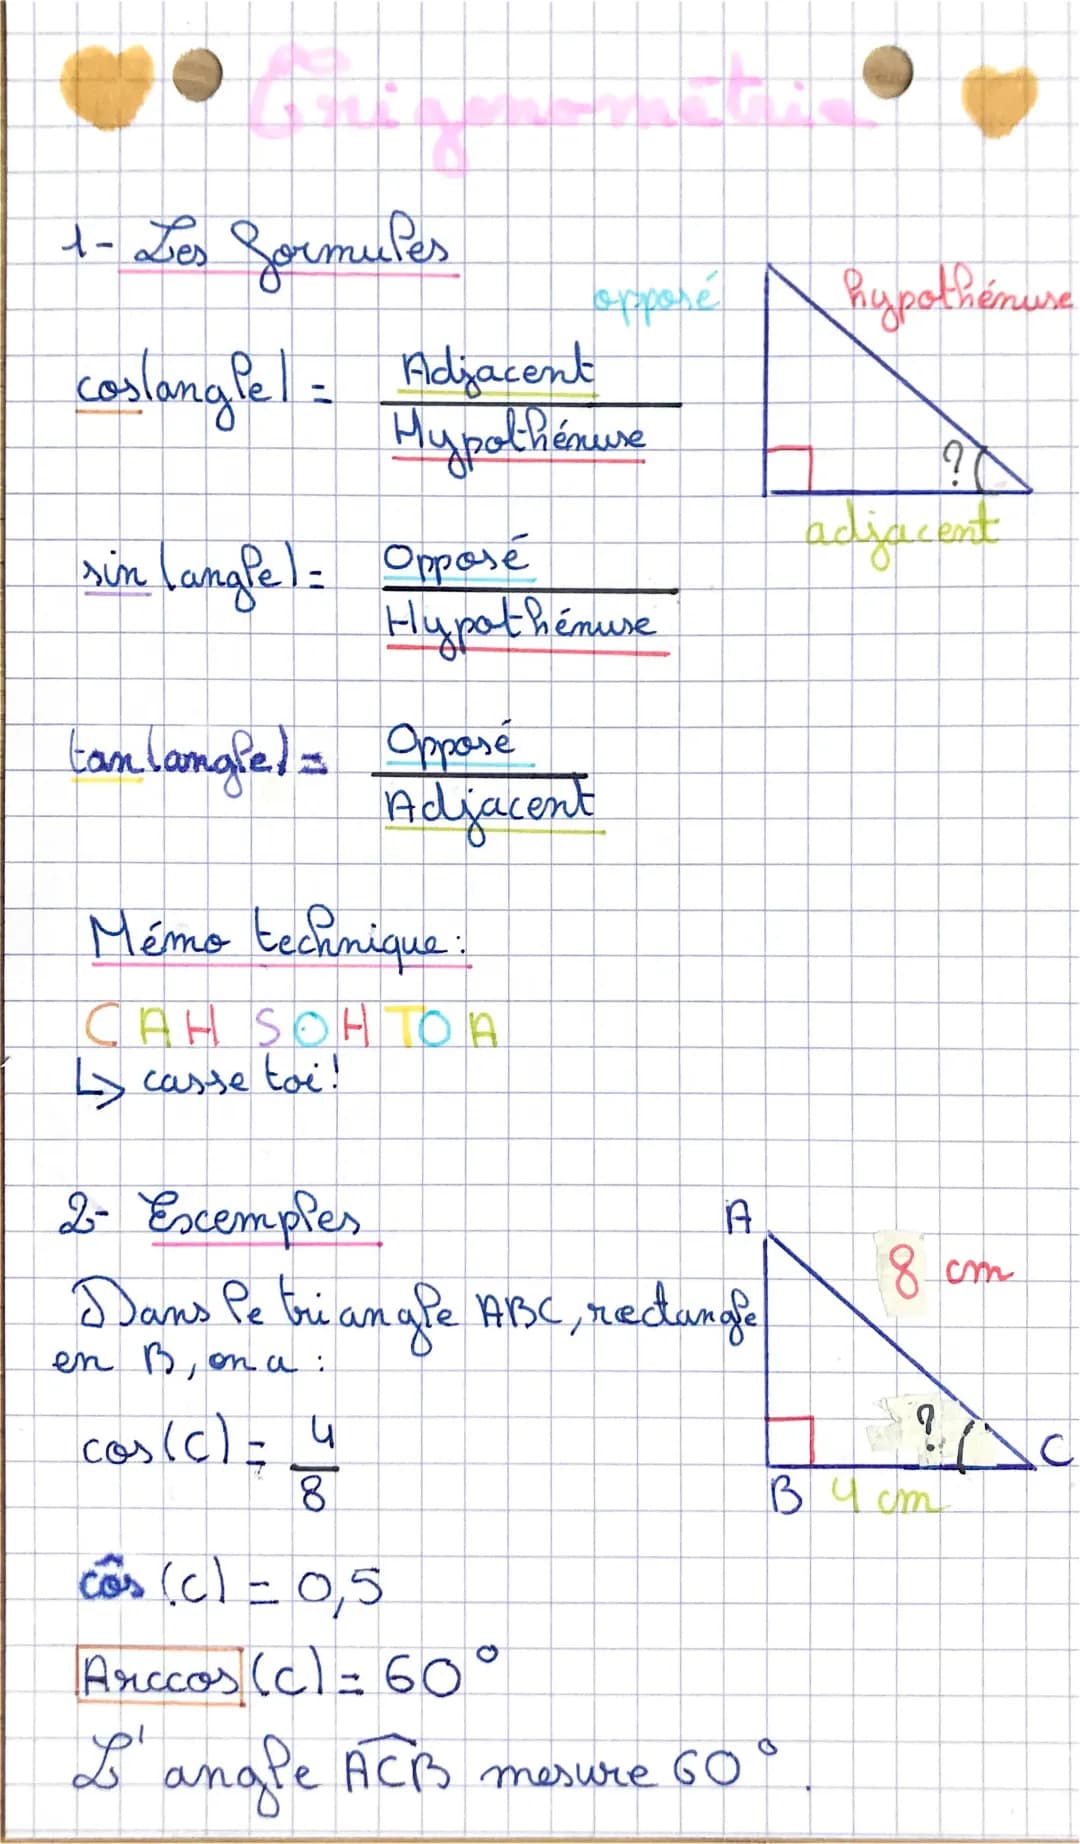 Trigonométrie
1- Les formules
opposé
hypothénuse
cos(angle) = Adjacent
Hypothénuse
?
adjacent
sin (angle) = Opposé
Hypothénuse
tan(angle) = Opposé
Adjacent
Mémo technique :
CAH SOH TOA
↳ casse toi !
2- Exemples
A
8 cm
Dans le triangle ABC, rectangle
en B, on a :
?
C
cos(C) = 4
8
B 4 cm
cos (C) = 0,5
Arccos (C) = 60°
L'angle ACB mesure 60°.